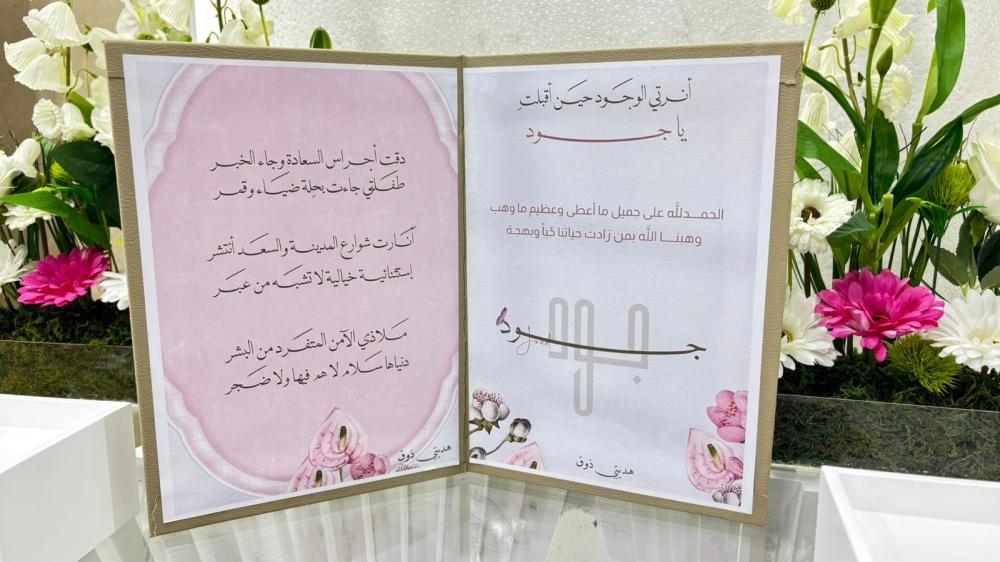 أنرتي الوجود حين أقبلتِ
يا جود
الحمدلله على جميل ما أعطى وعظيم ما وهب
وهبنا الله بمن زادت حياتنا حُباً وبهجة
جود
هديتي ذوق
دقت أجراس السعادة وجاء الخبر
طفلتي جاءت بحلة ضياء وقمر
آنارت شوارع المدينة والسعد أنتشر
إستثنائية خيالية لا تشبه من عبر
ملاذي الآمن المتفرد من البشر
دنياها سلام لا هم فيها ولا ضجر
هديتي ذوق